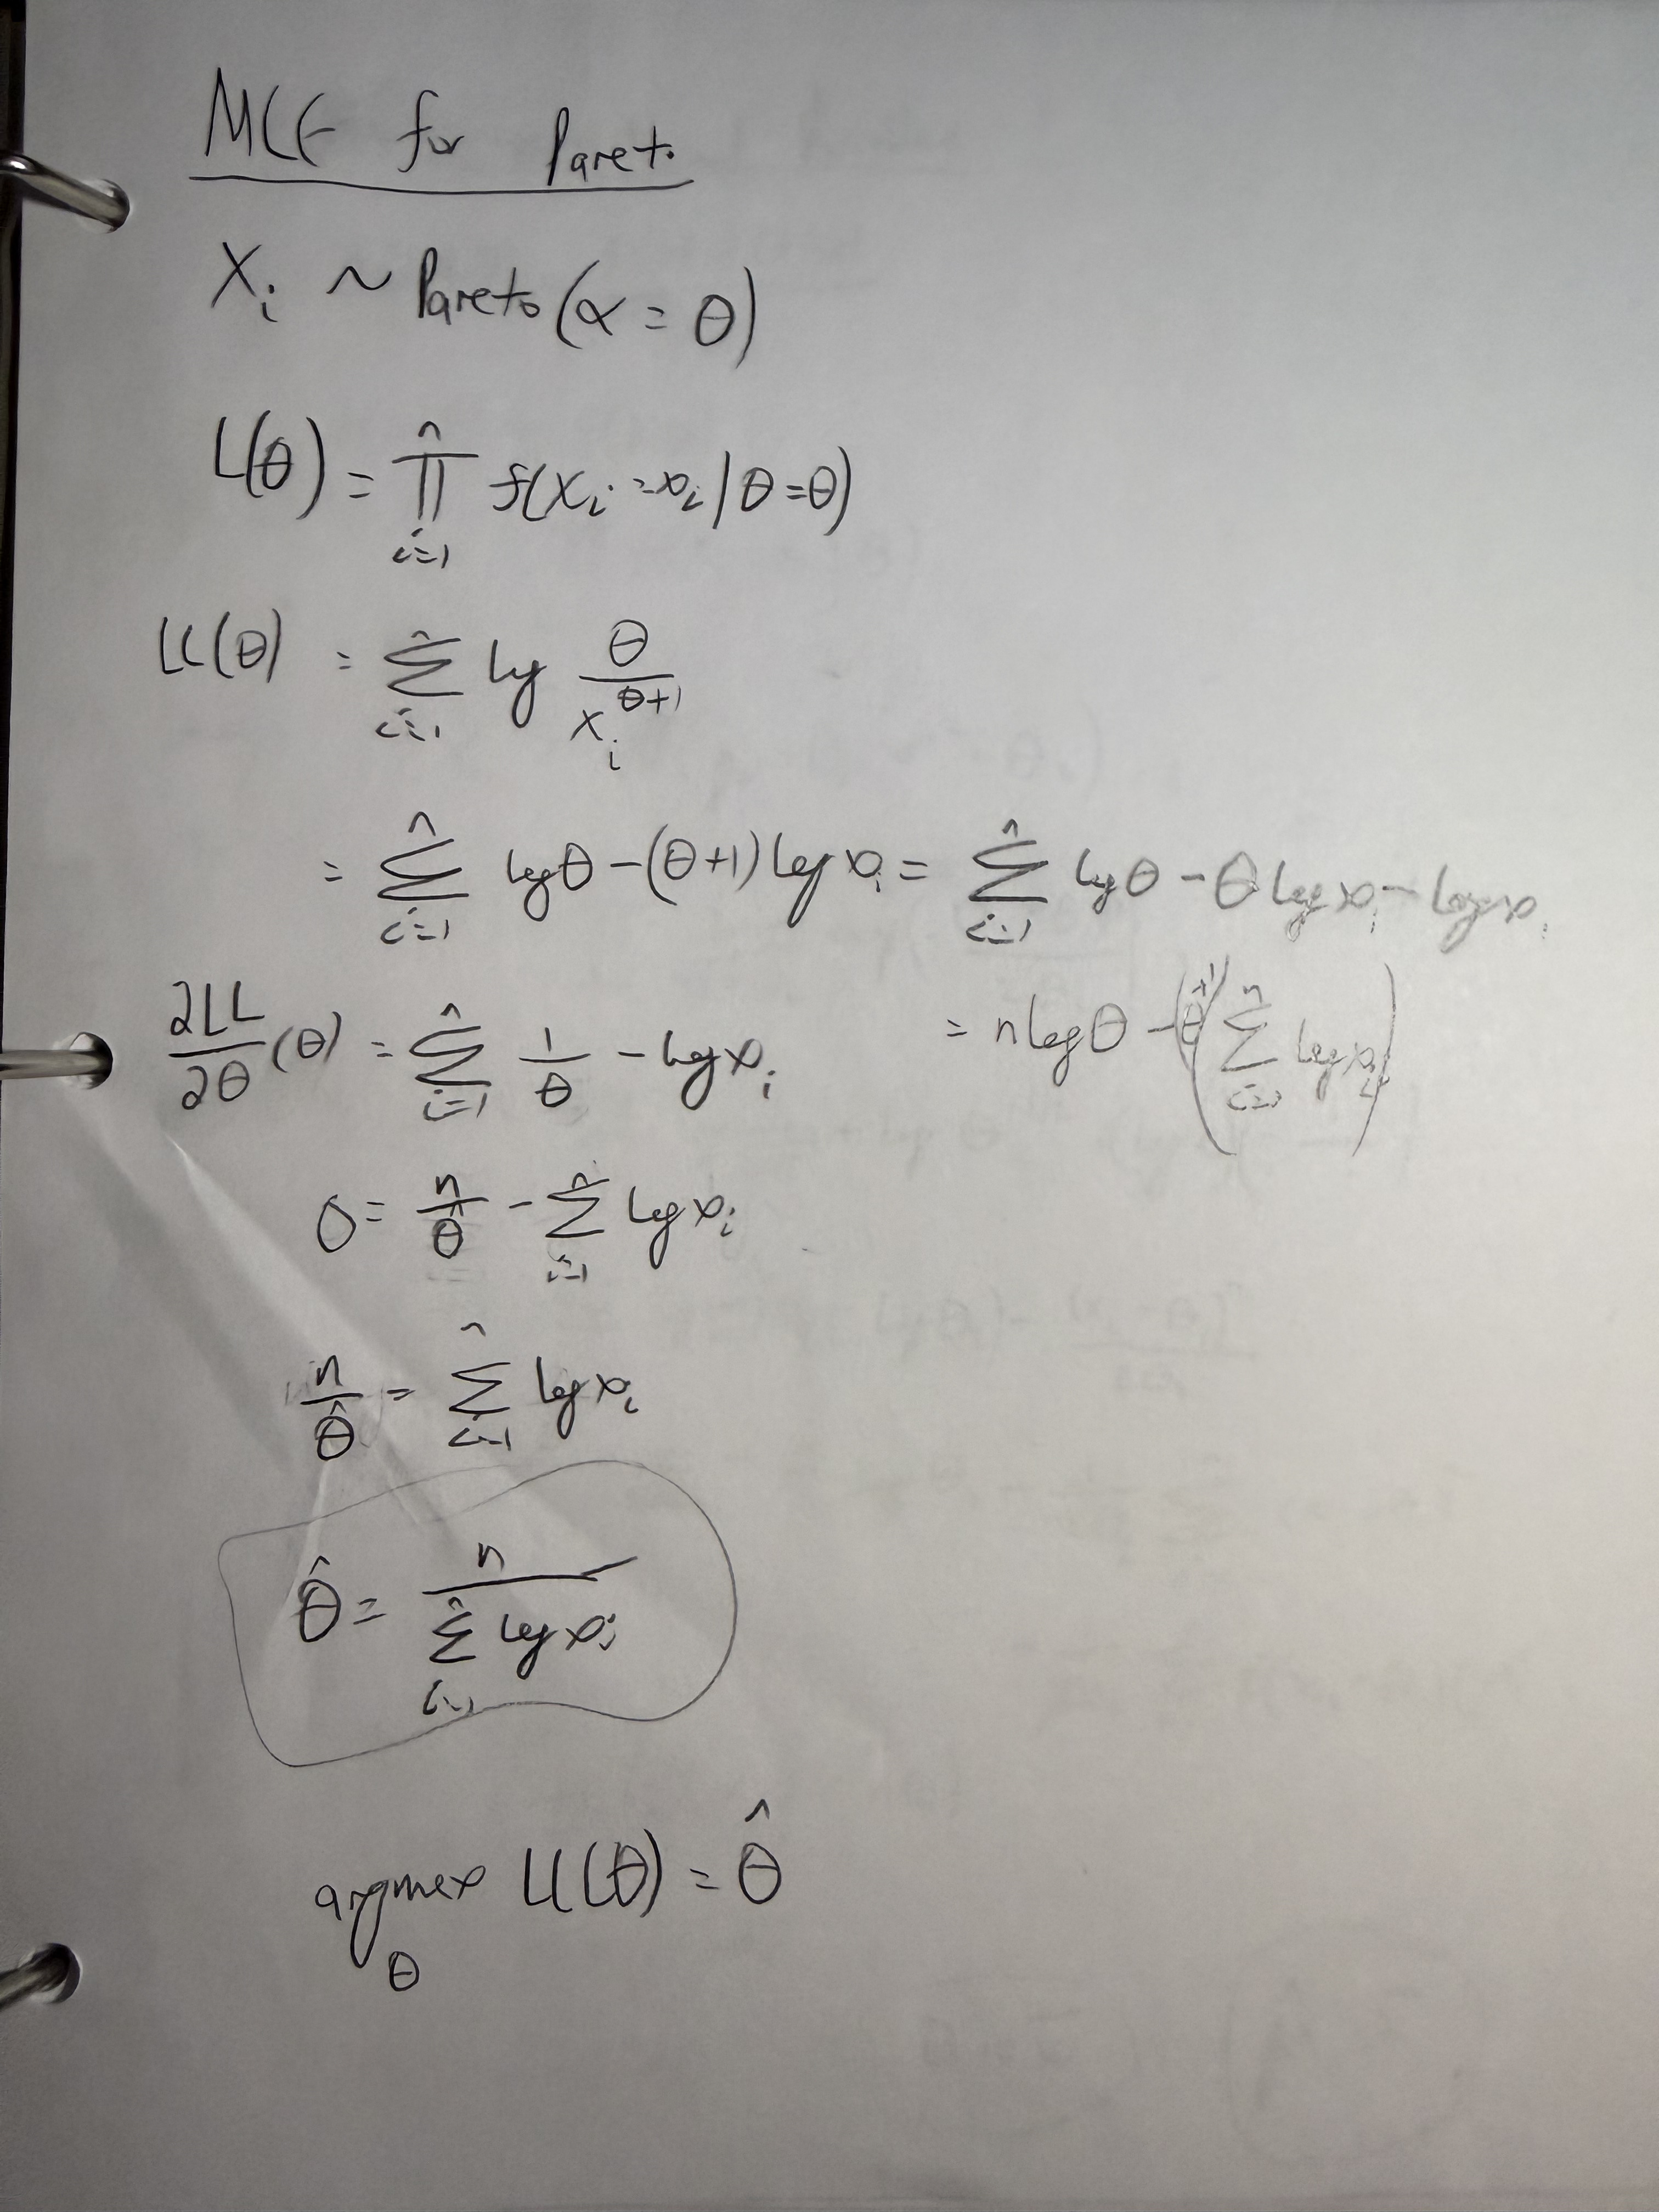 MLE for Pareto
X_i ~ Pareto(α = θ)
L(θ) = ∏_{i=1}^{n} f(X_i = x_i | θ = θ)
LL(θ) = ∑_{i=1}^{n} log θ / x_i^{θ+1}
= ∑_{i=1}^{n} log θ - (θ+1) log x_i = ∑_{i=1}^{n} log θ - θ log x_i - log x_i
∂LL/∂θ (θ) = ∑_{i=1}^{n} 1/θ - log x_i
= n log θ - (θ+1) (∑_{i=1}^{n} log x_i)
0 = n/θ̂ - ∑_{i=1}^{n} log x_i
n/θ̂ = ∑_{i=1}^{n} log x_i
θ̂ = n / ∑_{i=1}^{n} log x_i
argmax_θ LL(θ) = θ̂